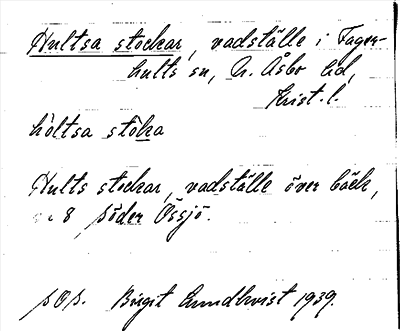 Hultsa stockar, vadställe i Fager-
hults sn, N. Åsbo hd,
Krist. l.
hòltsa stòka
Hults stockar, vadställe över bäck,
8 söder Össjö.
pOp. Birgit Lundkvist 1939.